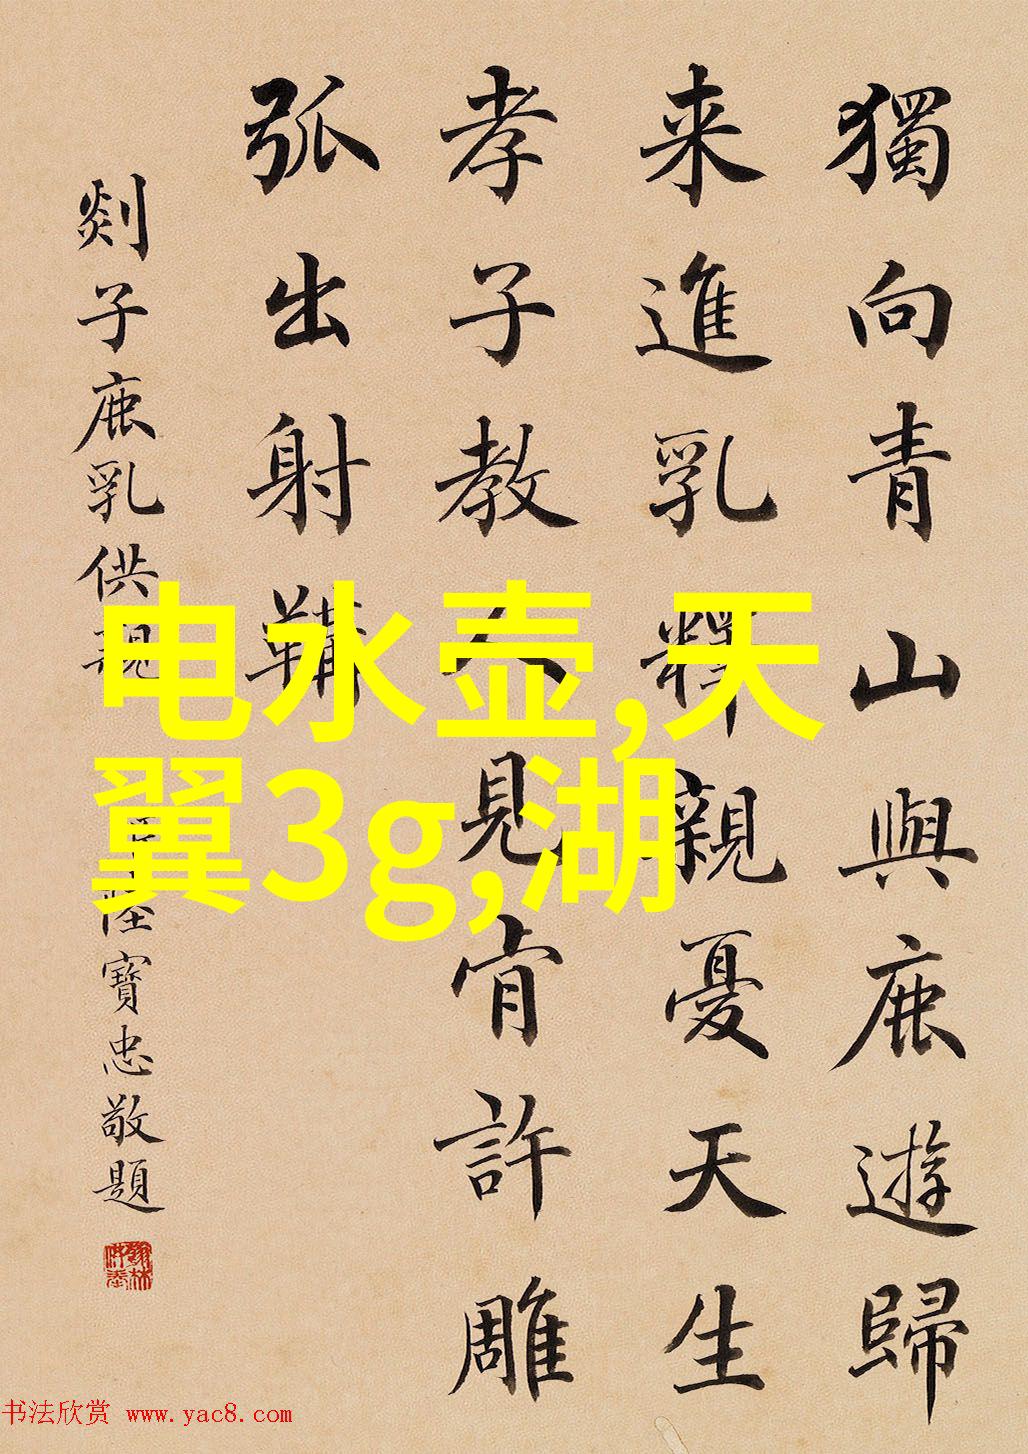 獨向青山與鹿遊歸
来進乳釋親憂天生
孝子教人見肯許雕
弧出射鞲
剡子鹿乳供親 陸寶忠敬題
电水壶,天
翼3g,湖
书法欣赏 www.yac8.com